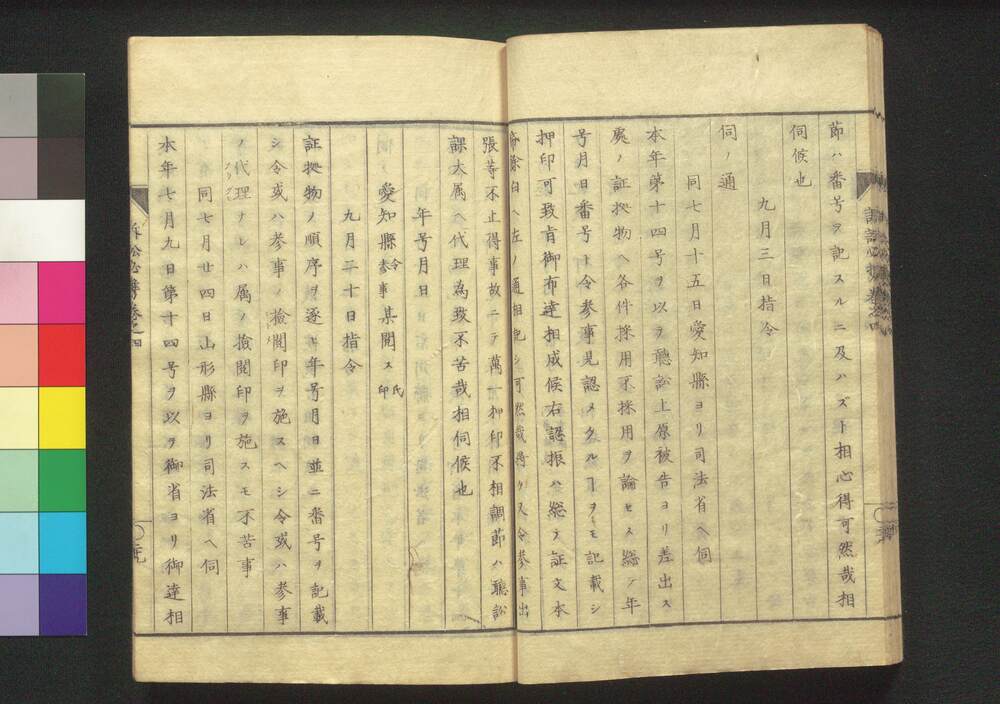 節ハ番号ヲ記スルニ及ハズト相心得可然哉相
伺候也
九月三日指令
伺ノ通
同七月十五日愛知縣ヨリ司法省ヘ伺
本年第十四号ヲ以テ聽訟上原被告ヨリ差出ス
處ノ証拠物ヘ各件採用不採用ヲ論セス総テ年
号月日番号ト令参事見認メタルヿヲモ記載シ
押印可致旨御布達相成候右認振ハ総テ証文本
餘白ヘ左ノ通相記シ可然哉将タ又令参事出
張等不止得事故ニテ萬一押印不相調節ハ聽訟
課大属ヘ代理為致不苦哉相伺候也
年号月日
愛知縣令参事某閲ス氏印
九月三十日指令
証拠物ノ順序ヲ逐ヒ年号月日並ニ番号ヲ記載
シ令或ハ参事ノ撿閲印ヲ施スヘシ令或ハ参事
ノ代理ナレハ属ノ撿閲印ヲ施スモ不苦事
同七月廿四日山形縣ヨリ司法省ヘ伺
本年七月九日第十四号ヲ以テ御省ヨリ御達相